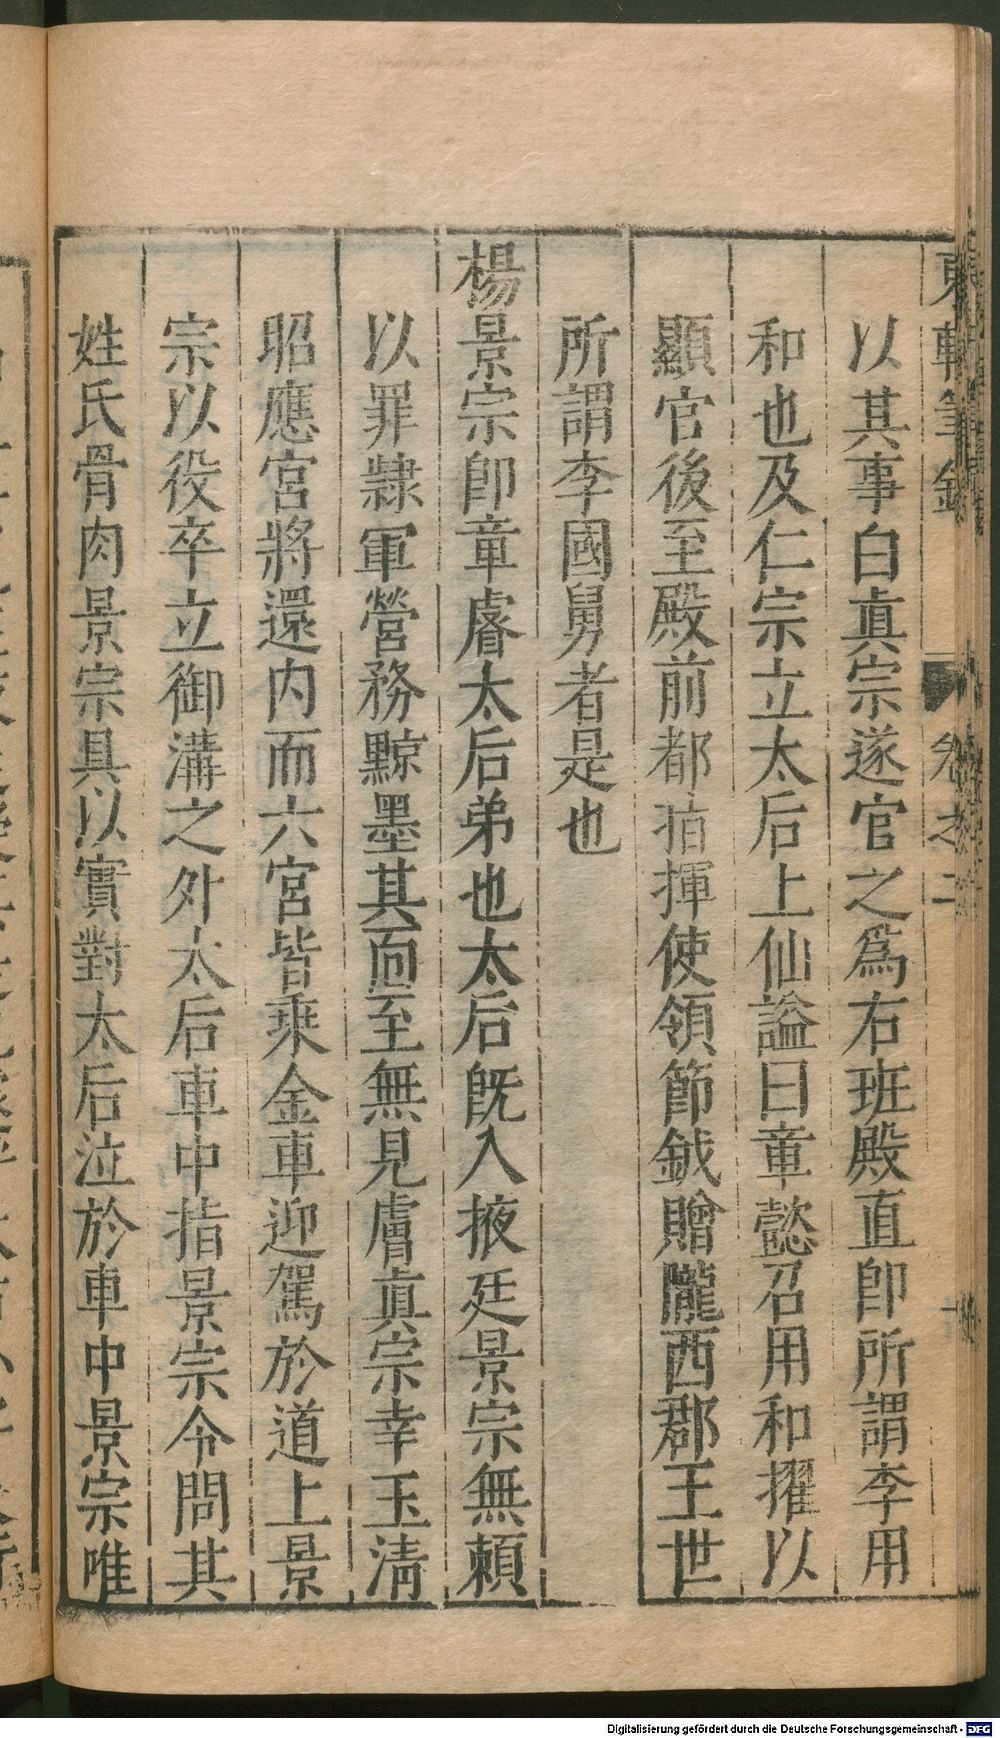 東軒筆錄 卷之二
以其事白真宗遂官之爲右班殿直卽所謂李用
和也及仁宗立太后上仙謚曰章懿召用和擢以
顯官後至殿前都指揮使領節鉞贈隴西郡王世
所謂李國舅者是也
楊景宗卽章睿太后弟也太后旣入掖廷景宗無賴
以罪隸軍營務黥墨其面至無見膚真宗幸玉清
昭應宮將還内而六宮皆乘金車迎駕於道上景
宗以役卒立御溝之外太后車中指景宗令問其
姓氏骨肉景宗具以實對太后泣於車中景宗唯
Digitalisierung gefördert durch die Deutsche Forschungsgemeinschaft - DFG